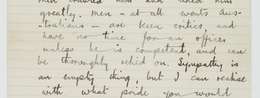 greatly. men - at all events Aus-
tralians - are keen critics - and
have no time for an officer
unless he is competent, and can
be thoroughly relied on. Sympathy is
an empty thing, but I can realise
with what pride you would